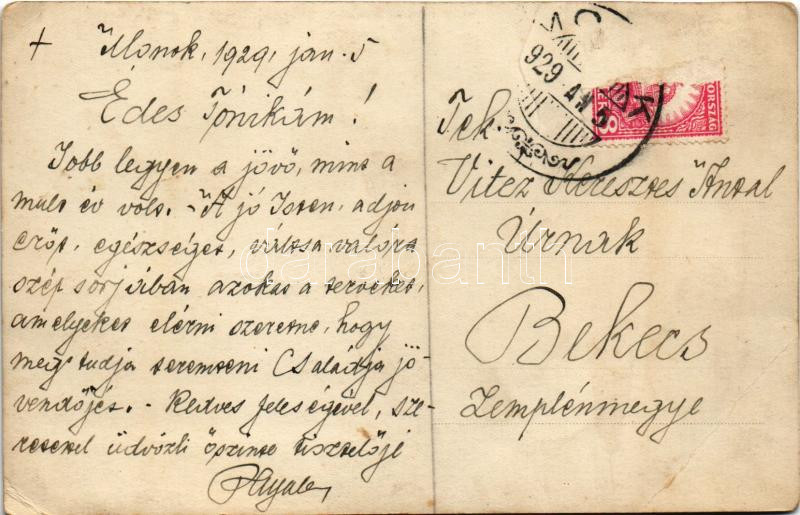 + Monok, 1929, jan. 5
Édes Tónikám!
Jobb legyen a jövő, mint a
mult év volt. - A jó Isten, adjon
erőt, egészséget, váltsa valóra
szép sorjában azokat a terveket,
amelyeket elérni szeretne, hogy
meg tudja teremteni Családja jö-
vendőjét. - Kedves feleségével, sze-
retettel üdvözli őszinte tisztelője
Tek.
Vitéz Keresztes Antal
Úrnak
Bekecs
Zemplénmegye
929 JAN 5
ORSZÁG
8
darabanth